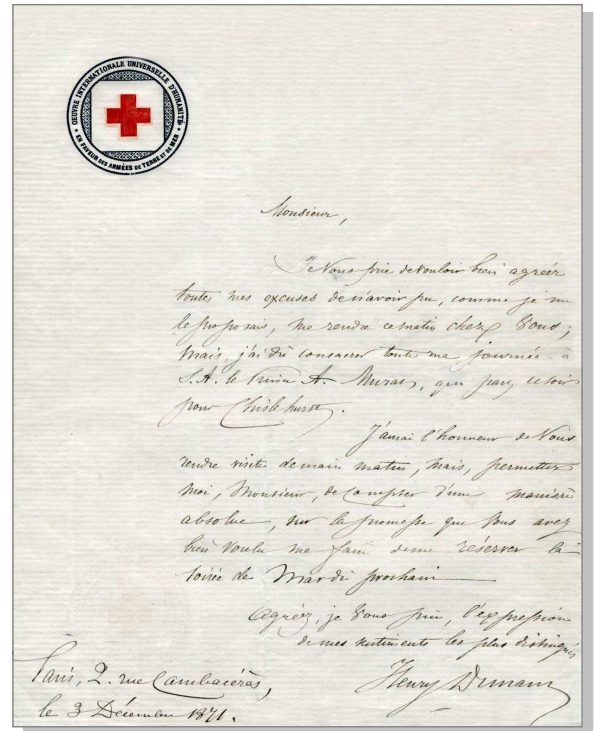 OEUVRE INTERNATIONALE UNIVERSELLE D'HUMANITÉ
EN FAVEUR DES ARMÉES DE TERRE ET DE MER
Monsieur,
Je Vous prie de vouloir bien agréer
toutes mes excuses de n'avoir pu, comme je me
le proposais, me rendre ce matin chez Vous;
mais, j'ai dû consacrer toute ma journée à
S.A. le Prince A. Murat, qui part ce soir
pour Chislehurst.
J'aurai l'honneur de Vous
rendre visite demain matin, mais, permettez
moi, Monsieur, de compter d'une manière
absolue, sur la promesse que Vous avez
bien voulu me faire de me réserver la
soirée de Mardi prochain
Agréez, je Vous prie, l'expression
de mes sentiments les plus distingués
Henry Dunant
Paris, 2. rue Cambacérès,
le 3 Décembre 1871.